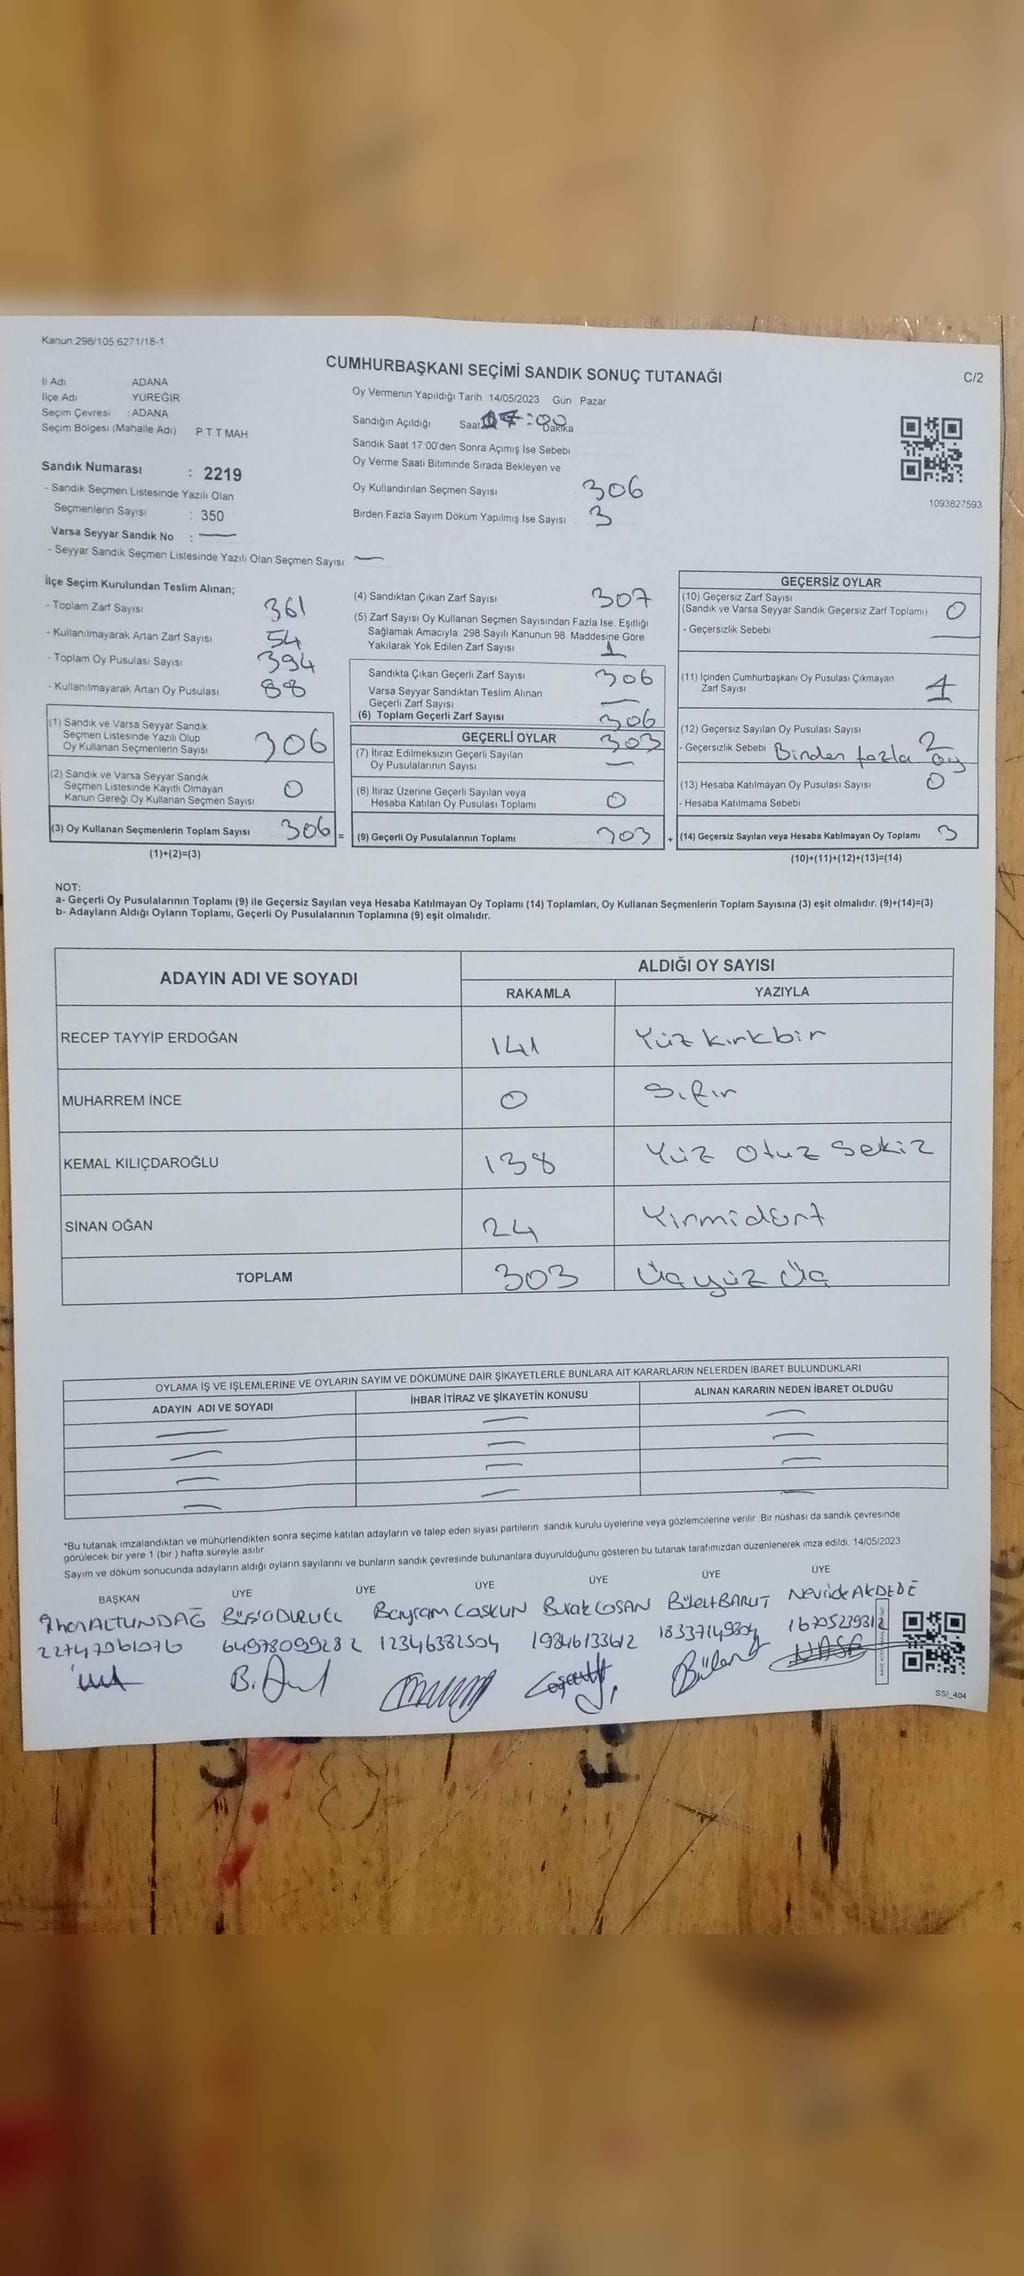 Kanun.298/105,6271/18-1
CUMHURBAŞKANI SEÇİMİ SANDIK SONUÇ TUTANAĞI
C/2
İl Adı ADANA
İlçe Adı YÜREĞİR
Seçim Çevresi : ADANA
Seçim Bölgesi (Mahalle Adı) P T T MAH
Oy Vermenin Yapıldığı Tarih 14/05/2023 Gün Pazar
Sandığın Açıldığı Saat 17:00 Dakika
Sandık Saat 17:00'den Sonra Açılmış İse Sebebi
Oy Verme Saati Bitiminde Sırada Bekleyen ve
Oy Kullandırılan Seçmen Sayısı 306
Birden Fazla Sayım Döküm Yapılmış İse Sayısı 3
1093827593
Sandık Numarası : 2219
- Sandık Seçmen Listesinde Yazılı Olan
Seçmenlerin Sayısı : 350
Varsa Seyyar Sandık No : —
- Seyyar Sandık Seçmen Listesinde Yazılı Olan Seçmen Sayısı —
İlçe Seçim Kurulundan Teslim Alınan;
- Toplam Zarf Sayısı 361
- Kullanılmayarak Artan Zarf Sayısı 54
- Toplam Oy Pusulası Sayısı 394
- Kullanılmayarak Artan Oy Pusulası 88
(1) Sandık ve Varsa Seyyar Sandık
Seçmen Listesinde Yazılı Olup
Oy Kullanan Seçmenlerin Sayısı 306
(2) Sandık ve Varsa Seyyar Sandık
Seçmen Listesinde Kayıtlı Olmayan
Kanun Gereği Oy Kullanan Seçmen Sayısı 0
(3) Oy Kullanan Seçmenlerin Toplam Sayısı 306 =
(1)+(2)=(3)
(4) Sandıktan Çıkan Zarf Sayısı 307
(5) Zarf Sayısı Oy Kullanan Seçmen Sayısından Fazla İse, Eşitliği
Sağlamak Amacıyla. 298 Sayılı Kanunun 98. Maddesine Göre
Yakılarak Yok Edilen Zarf Sayısı 1
Sandıkta Çıkan Geçerli Zarf Sayısı 306
Varsa Seyyar Sandıktan Teslim Alınan
Geçerli Zarf Sayısı —
(6) Toplam Geçerli Zarf Sayısı 306
GEÇERLİ OYLAR 303
(7) İtiraz Edilmeksizin Geçerli Sayılan
Oy Pusulalarının Sayısı —
(8) İtiraz Üzerine Geçerli Sayılan veya
Hesaba Katılan Oy Pusulası Toplamı 0
(9) Geçerli Oy Pusulalarının Toplamı 303 +
GEÇERSİZ OYLAR
(10) Geçersiz Zarf Sayısı
(Sandık ve Varsa Seyyar Sandık Geçersiz Zarf Toplamı) 0
- Geçersizlik Sebebi —
(11) İçinden Cumhurbaşkanı Oy Pusulası Çıkmayan
Zarf Sayısı 1
(12) Geçersiz Sayılan Oy Pusulası Sayısı 2
- Geçersizlik Sebebi Birden fazla oy
(13) Hesaba Katılmayan Oy Pusulası Sayısı 0
- Hesaba Katılmama Sebebi
(14) Geçersiz Sayılan veya Hesaba Katılmayan Oy Toplamı 3
(10)+(11)+(12)+(13)=(14)
NOT:
a- Geçerli Oy Pusulalarının Toplamı (9) ile Geçersiz Sayılan veya Hesaba Katılmayan Oy Toplamı (14) Toplamları, Oy Kullanan Seçmenlerin Toplam Sayısına (3) eşit olmalıdır. (9)+(14)=(3)
b- Adayların Aldığı Oyların Toplamı, Geçerli Oy Pusulalarının Toplamına (9) eşit olmalıdır.
ADAYIN ADI VE SOYADI
ALDIĞI OY SAYISI
RAKAMLA YAZIYLA
RECEP TAYYİP ERDOĞAN 141 Yüz kırkbir
MUHARREM İNCE 0 Sıfır
KEMAL KILIÇDAROĞLU 138 Yüz Otuz Sekiz
SİNAN OĞAN 24 Yirmidört
TOPLAM 303 Üçyüz Üç
OYLAMA İŞ VE İŞLEMLERİNE VE OYLARIN SAYIM VE DÖKÜMÜNE DAİR ŞİKAYETLERLE BUNLARA AİT KARARLARIN NELERDEN İBARET BULUNDUKLARI
ADAYIN ADI VE SOYADI İHBAR İTİRAZ VE ŞİKAYETİN KONUSU ALINAN KARARIN NEDEN İBARET OLDUĞU
*Bu tutanak imzalandıktan ve mühürlendikten sonra seçime katılan adayların ve talep eden siyasi partilerin sandık kurulu üyelerine veya gözlemcilerine verilir. Bir nüshası da sandık çevresinde
görülecek bir yere 1 (bir ) hafta süreyle asılır.
Sayım ve döküm sonucunda adayların aldığı oyların sayılarını ve bunların sandık çevresinde bulunanlara duyurulduğunu gösteren bu tutanak tarafımızdan düzenlenerek imza edildi. 14/05/2023
BAŞKAN ÜYE ÜYE ÜYE ÜYE ÜYE ÜYE
İlhan ALTUNDAĞ Bayram COSKUN Burak COSAN Bülent BARUT Nevide AKDEDE
22747961076 64978099282 12346382504 19846133612 18337149804 16705239312
Bülent
SSI_404